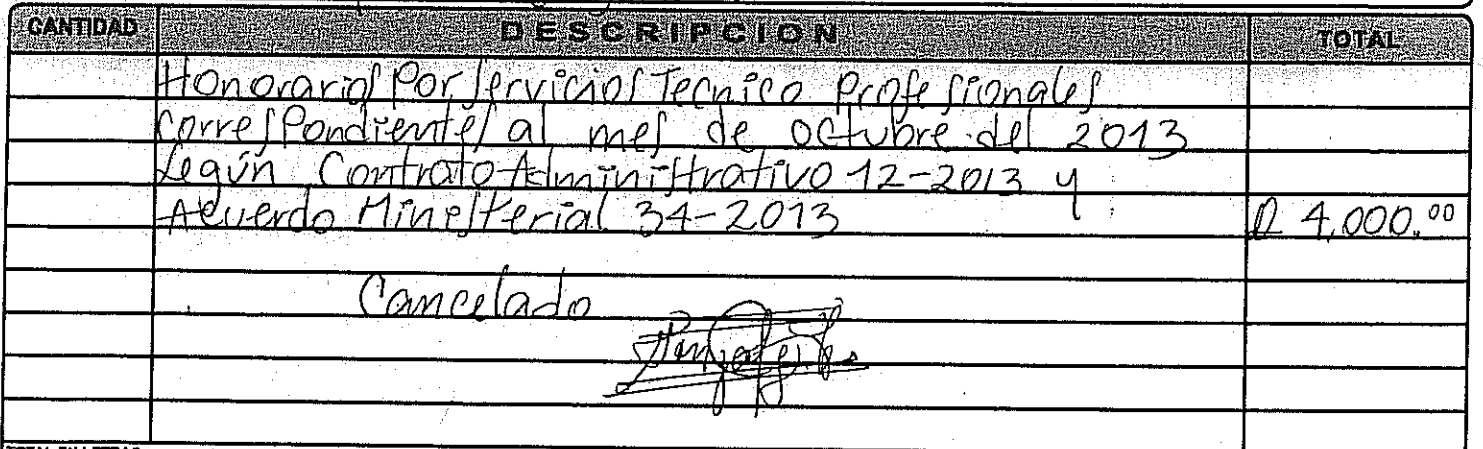 CANTIDAD DESCRIPCION TOTAL
Honorarios Por Servicios Tecnico Profesionales
correspondientes al mes de octubre del 2013
Según Contrato Administrativo 12-2013 y
Acuerdo Ministerial 34-2013 Q 4,000.00
Cancelado